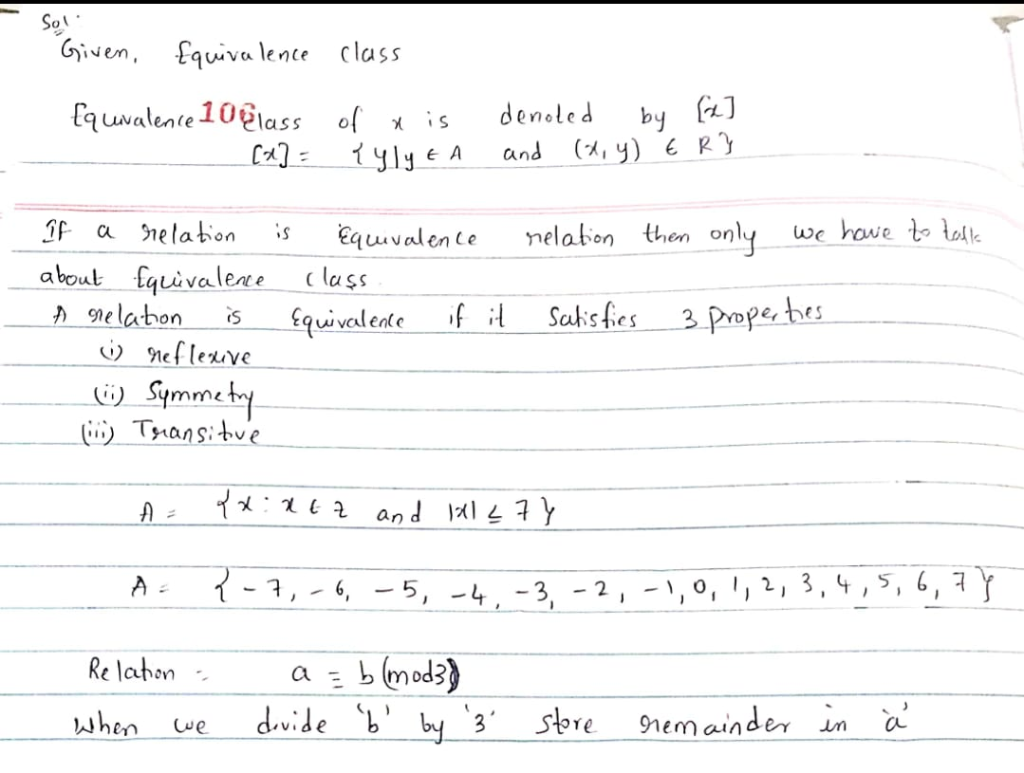 Sol:
Given, Equivalence class
Equivalence 106 class of x is denoted by [x]
[x] = {y|y ∈ A and (x, y) ∈ R}
If a relation is Equivalence relation then only we have to talk
about Equivalence class.
A relation is Equivalence if it Satisfies 3 properties
(i) reflexive
(ii) Symmetry
(iii) Transitive
A = {x : x ∈ z and |x| ≤ 7}
A = {-7, -6, -5, -4, -3, -2, -1, 0, 1, 2, 3, 4, 5, 6, 7}
Relation = a ≡ b (mod3)
When we divide 'b' by '3' store remainder in 'a'